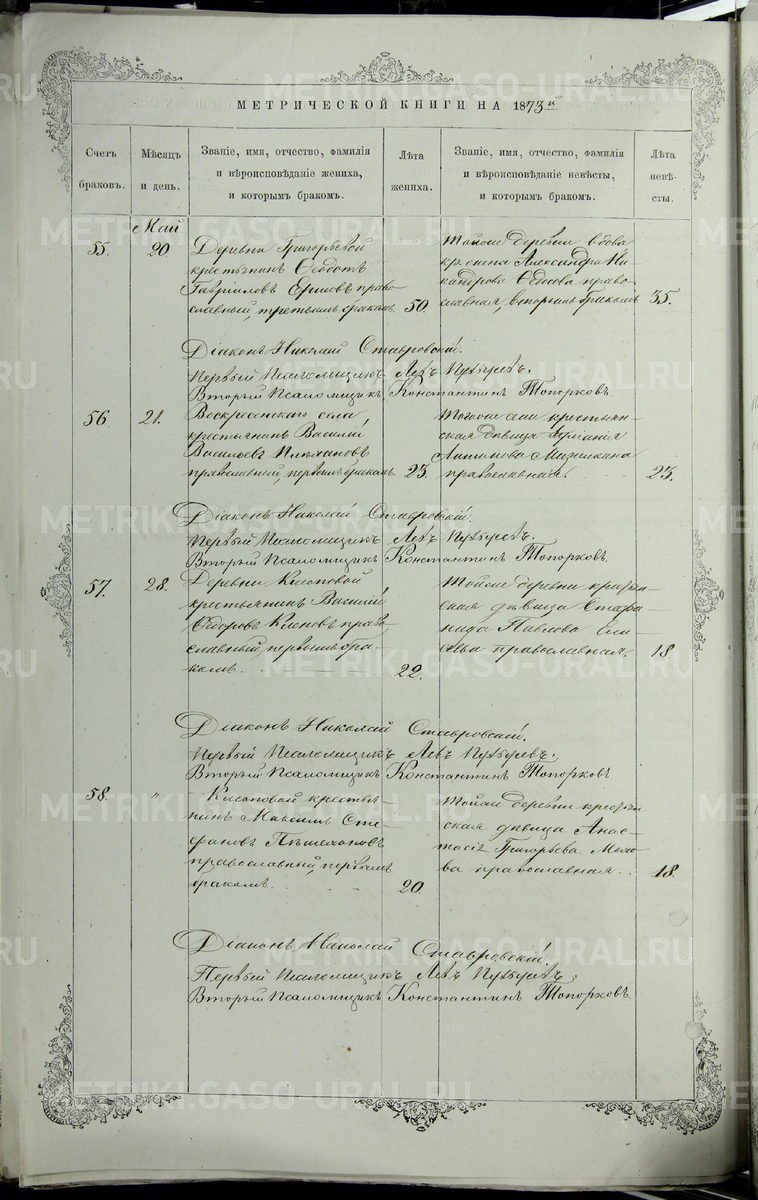 МЕТРИЧЕСКОЙ КНИГИ НА 1873й
Счетъ браковъ.
Мѣсяцъ и день.
Званіе, имя, отчество, фамилія
и вѣроисповѣданіе жениха,
и которымъ бракомъ.
Лѣта жениха.
Званіе, имя, отчество, фамилія
и вѣроисповѣданіе невѣсты,
и которымъ бракомъ.
Лѣта невѣсты.
Май
55. 20
Деревни Григорьевой
крестьянинъ Ѳедотъ
Гавріиловъ Ершовъ право-
славный, третьимъ бракомъ. 50.
Тойже деревни вдова
кр. жена Александра Ни-
кандрова православная, вторымъ бракомъ 35.
Діаконъ Николай Ставровскій.
Первый Псаломщикъ Левъ
Вторый Псаломщикъ Константинъ Топорковъ.
56 21.
Воскресенскаго села
крестьянинъ Василій
Васильевъ
православный, первымъ бракомъ. 23.
Тогоже села крестьян-
ская дѣвица
православная. 23.
Діаконъ Николай Ставровскій.
Первый Псаломщикъ Левъ
Вторый Псаломщикъ Константинъ Топорковъ.
57. 28.
Деревни
крестьянинъ Василій
Ѳедоровъ право-
славный, первымъ бра-
комъ. 22.
Тойже деревни крестьян-
ская дѣвица Стефа-
нида Павлова
православная. 18.
Діаконъ Николай Ставровскій.
Первый Псаломщикъ Левъ
Вторый Псаломщикъ Константинъ Топорковъ
58. "
крестья-
нинъ Максимъ Сте-
фановъ
православный, первымъ
бракомъ. 20
Тойже деревни крестьян-
ская дѣвица Анас-
тасія Григорьева
православная. 18.
Діаконъ Николай Ставровскій.
Первый Псаломщикъ Левъ
Вторый Псаломщикъ Константинъ Топорковъ.
METRIKI.GASO-URAL.RU